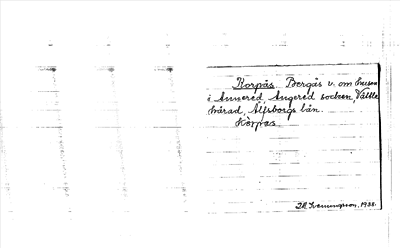 Korpås Bergås v. om husen
i Annered, Angered socken, Vättle
härad, Älfsborgs län.
Kòrpas
1938.